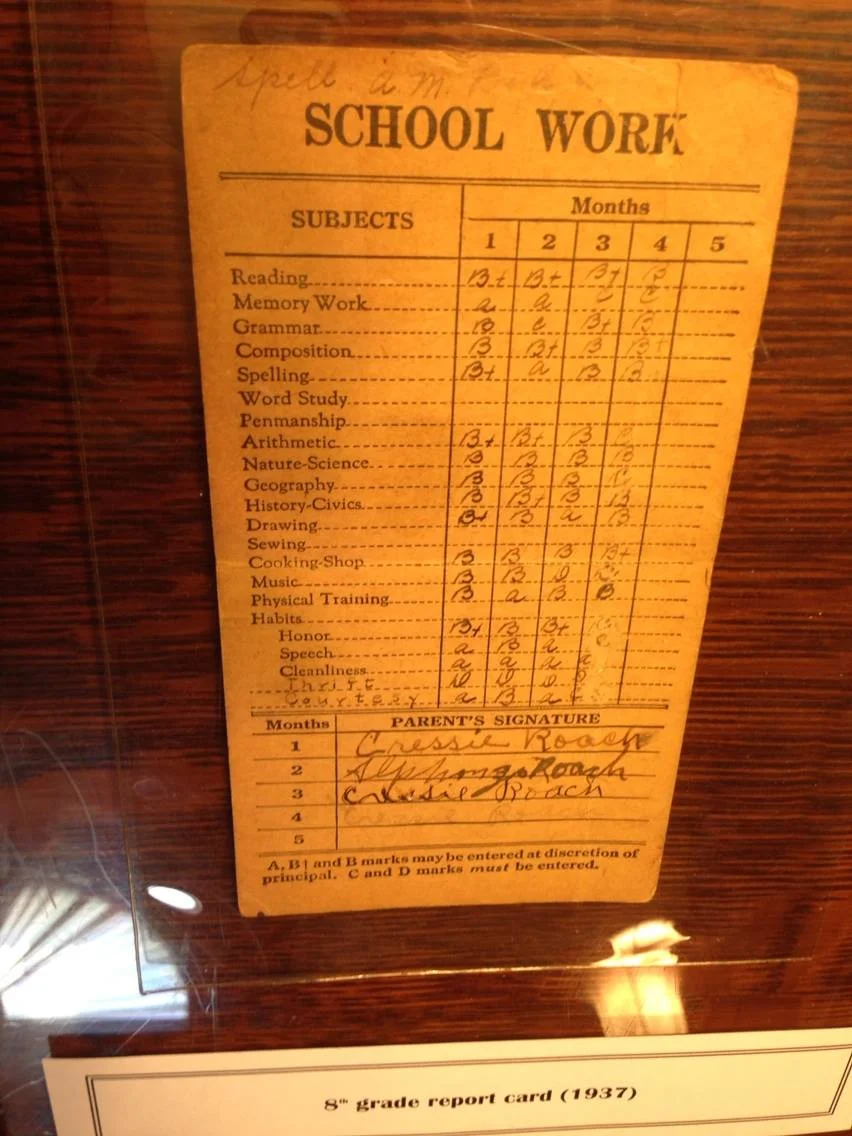 Spell a m.
SCHOOL WORK
SUBJECTS Months
1 2 3 4 5
Reading B+ B+ B+ B
Memory Work a a c c
Grammar B c B+ B
Composition B B+ B B+
Spelling B+ a B B
Word Study
Penmanship
Arithmetic B+ B+ B
Nature-Science B B B B
Geography B B B
History-Civics B B+ B B
Drawing B+ B a B
Sewing
Cooking-Shop B B B B+
Music B B D
Physical Training B a B B
Habits
Honor B+ B B+
Speech a B a c
Cleanliness a a a a
Thrift D D D
Courtesy a B a
Months PARENT'S SIGNATURE
1 Cressie Roach
2 Alphonzo Roach
3 Cressie Roach
4 Cressie
5
A, B† and B marks may be entered at discretion of
principal. C and D marks must be entered.
8th grade report card (1937)